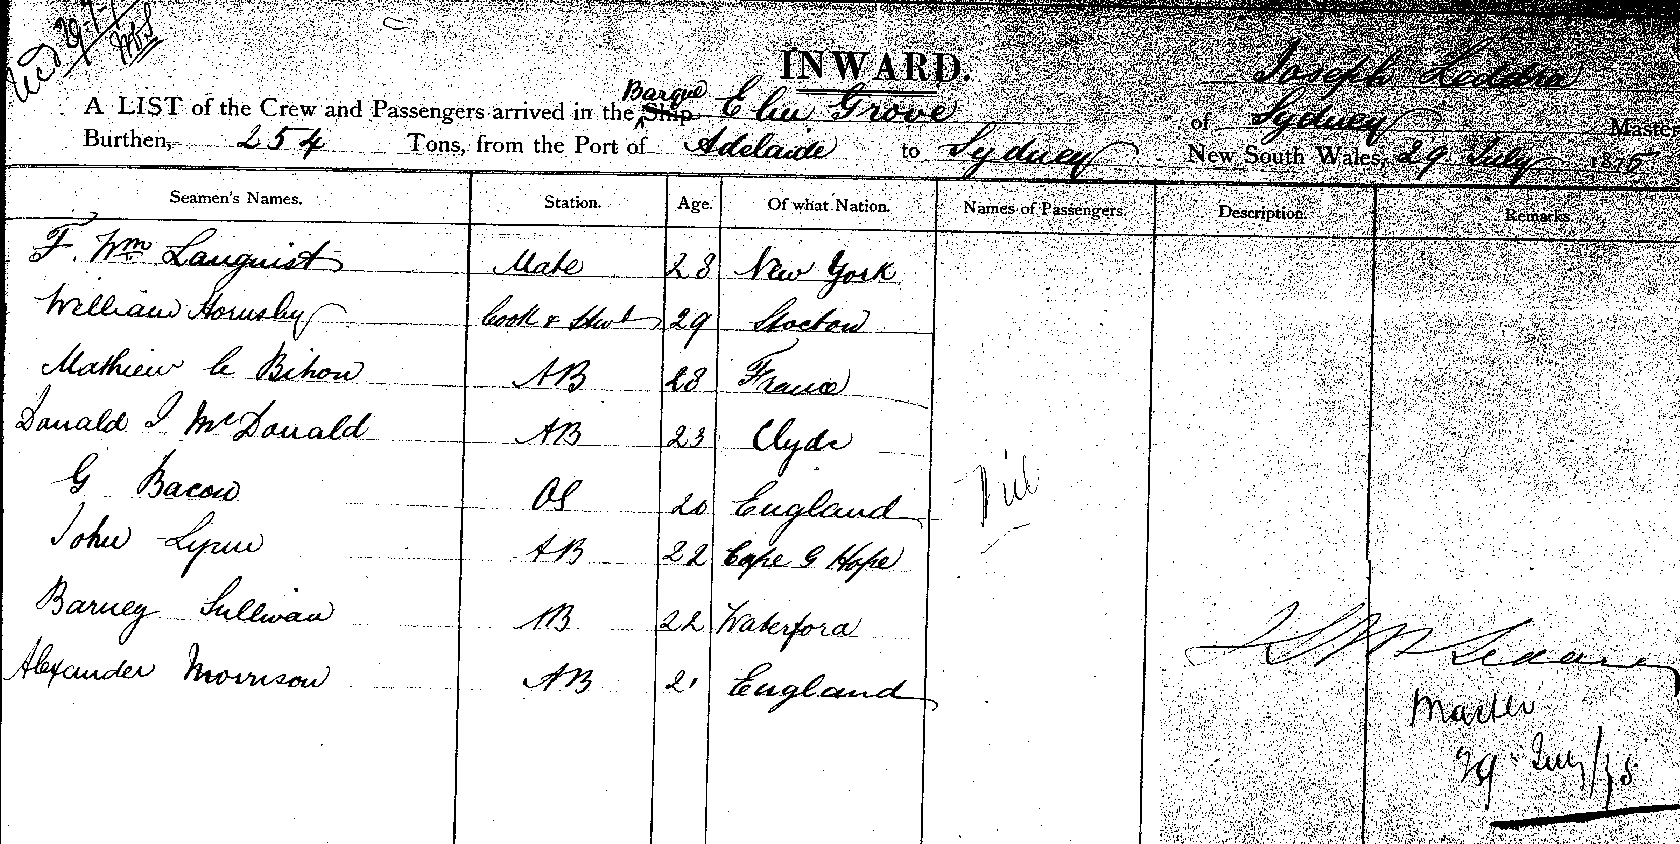 INWARD.
Barque
A LIST of the Crew and Passengers arrived in the Ship Grove
Joseph
of Sydney Master
Burthen, 254 Tons, from the Port of Adelaide to Sydney New South Wales, 29 July 1875
Seamen's Names. Station. Age. Of what Nation. Names of Passengers. Description. Remarks.
F. Wm Lanquist Mate 28 New York
William Hornsby Cook & Stwd 29 Stockton
Mathieu le Bihon AB 28 France
Donald J McDonald AB 23 Clyde
G Bacon OS 20 England
Nil
John Lynn AB 22 Cape G Hope
Barney Sullivan AB 22 Waterford
Alexander Morrison AB 21 England
Master
29 July/75